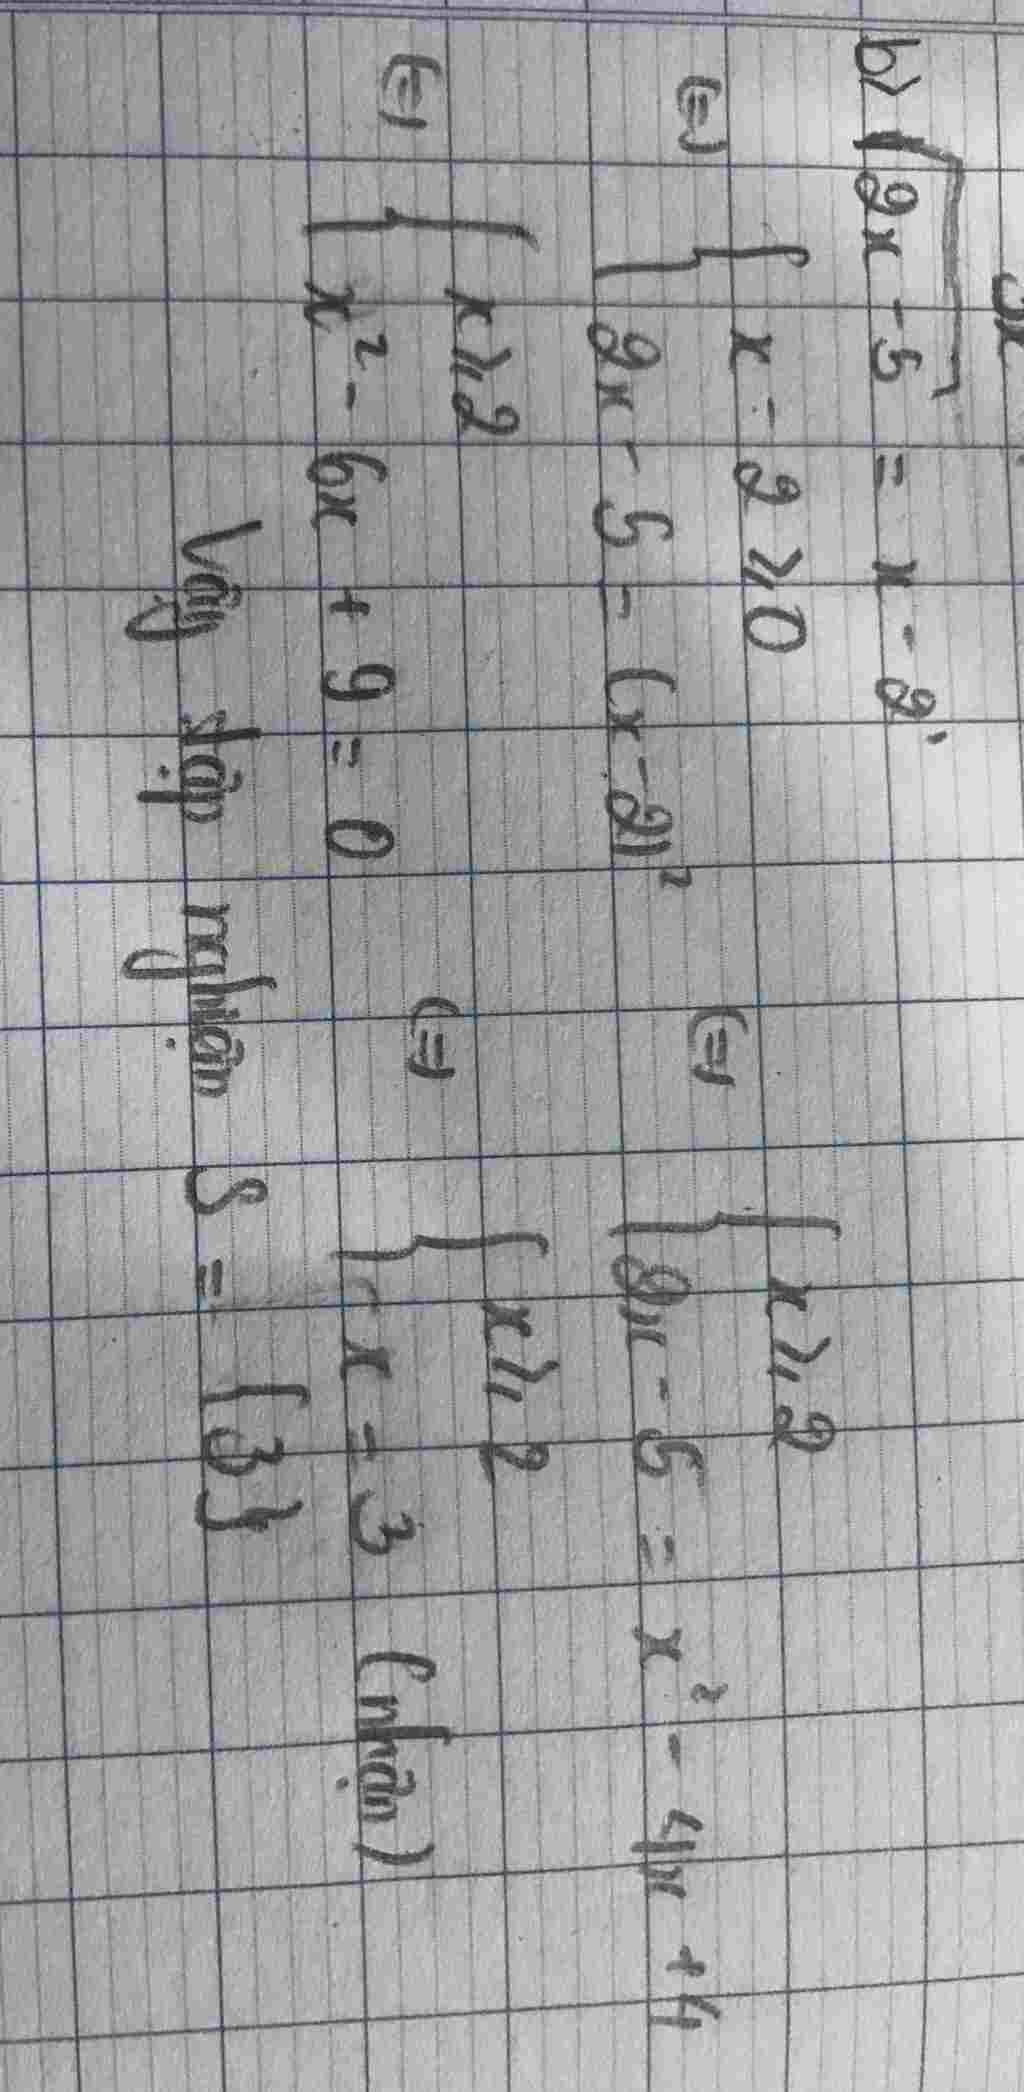 b) √(2x - 5) = x - 2
(=) { x - 2 ⩾ 0 (=) { x ⩾ 2
{ 2x - 5 = (x - 2)² { 2x - 5 = x² - 4x + 4
(=) { x ⩾ 2 (=) { x ⩾ 2
{ x² - 6x + 9 = 0 { x = 3 (nhận)
Vậy tập nghiệm S = {3}